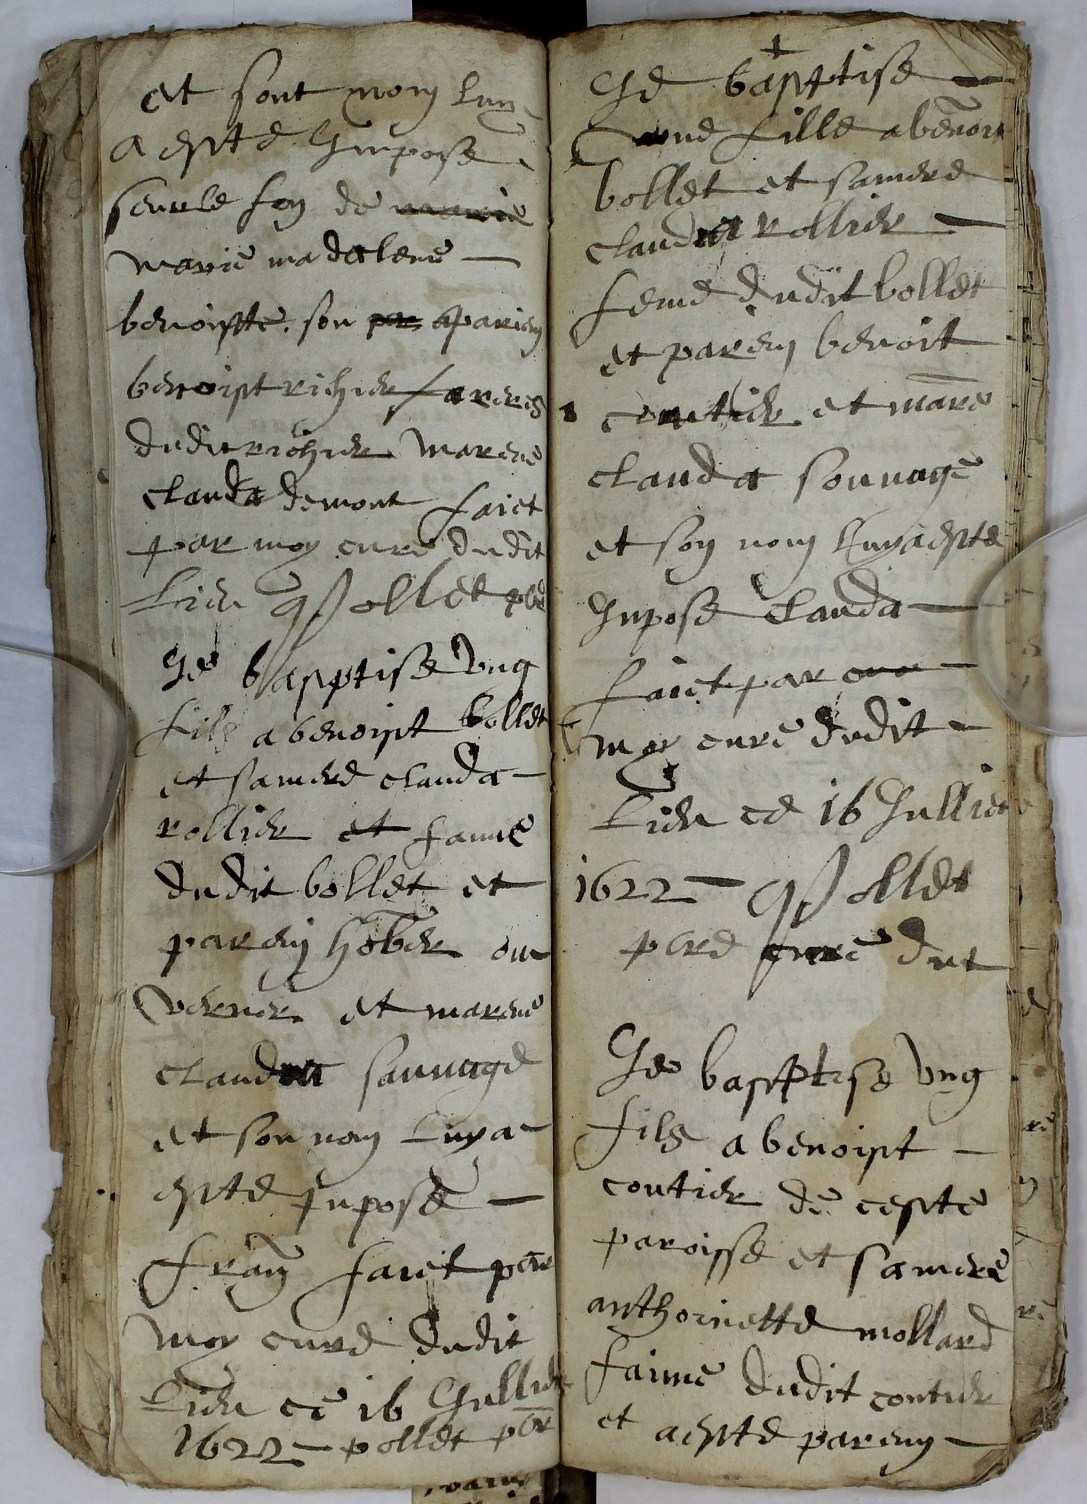 et sont nom luy
a esté Inposé
seurle fon de marie
marie madelene
benoiste. son par aparien
benoist richier freres
dudit richier marene
clauda demont faict
par moy curé dudit
Lieu Pollet pbr
Ie baptise ung
fils a benoist bollet
et samere clauda
rollier et famme
dudit bollet et
parein hober ou
verner et marene
clauda sauvage
et son nom luy a
esté inposé
fran faict par
moy curé dudit
Lieu ce 16 Jullie
1622 pollet pbr
Ie baptise
une fille a benoi
bollet et samere
clauda rollier
feme dudit bollet
et parein benoit
coutier et mare
clauda sonvage
et soy nom luy a esté
Inposé clauda
faict par cure
moy curé dudit
Lieu ce 16 Jullie
1622 Pollet
pbre curé dut
Ie baptise ung
fils a benoist
coutier de ceste
paroisse et samere
anthoinette mollard
faime dudit coutier
et a esté pareny